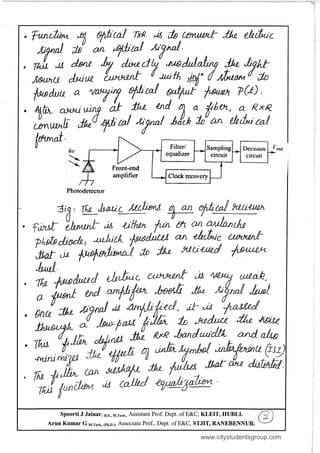 • Function of optical TxR is to convert the electric
signal to an optical signal.
• This is done by directly modulating the light
source drive current with infⁿ stream to
produce a varying optical output power P(t).
• After arriving at the end of a fiber, a RxR
converts the optical signal back to an electrical
format.
hν
Filter/
equalizer
Sampling
circuit
Decision
circuit
Vout
Front-end
amplifier
Clock recovery
Photodetector
Fig: The basic sections of an optical receiver
• First element is either pin or an avalanche
photodiode, which produces an electric current
that is proportional to the received power
level.
• The produced electric current is very weak,
a front end amplifier boosts the signal level
• Once the signal is amplified, it is passed
through a low-pass filter to reduce the noise
• This filter defines the RxR bandwidth and also
minimizes the effects of inter symbol interference (ISI)
• The filter can reshape the pulses that are distorted.
This function is called equalization.
Spoorti J Jainar, B.E., M.Tech., Assistant Prof. Dept. of E&C, KLEIT, HUBLI.
Arun Kumar G M.Tech., (Ph.D.) Associate Prof., Dept. of E&C, STJIT, RANEBENNUR.
2
www.citystudentsgroup.com